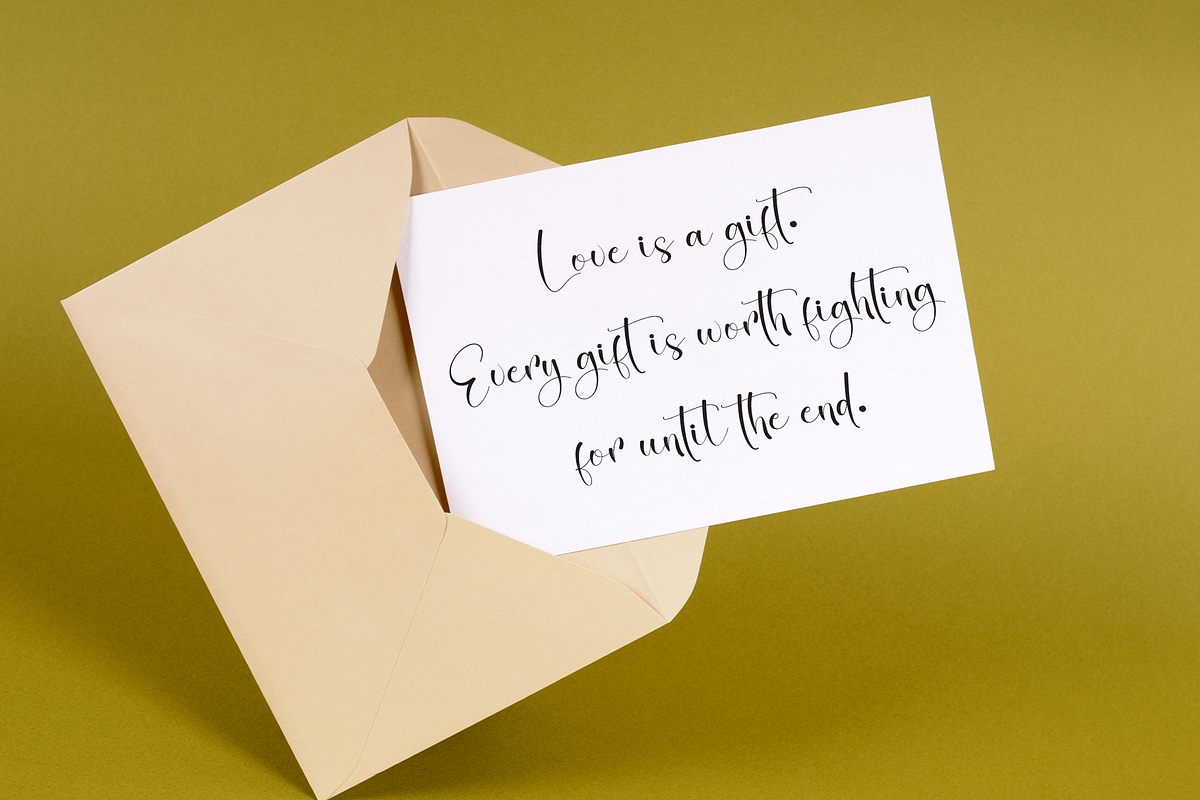 Love is a gift.
Every gift is worth fighting
for until the end.